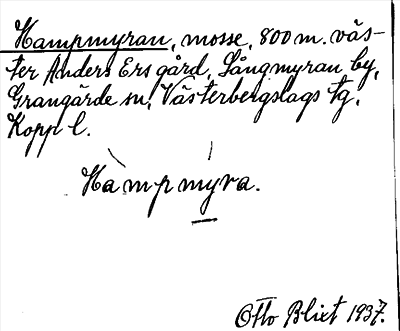 Hampmyran, mosse, 800 m. väs-
ter Anders Ers gård, Långmyran by,
Grangärde sn, Västerbergslags tg,
Kopp l.
Hàmpmýra.
Otto Blixt 1937.